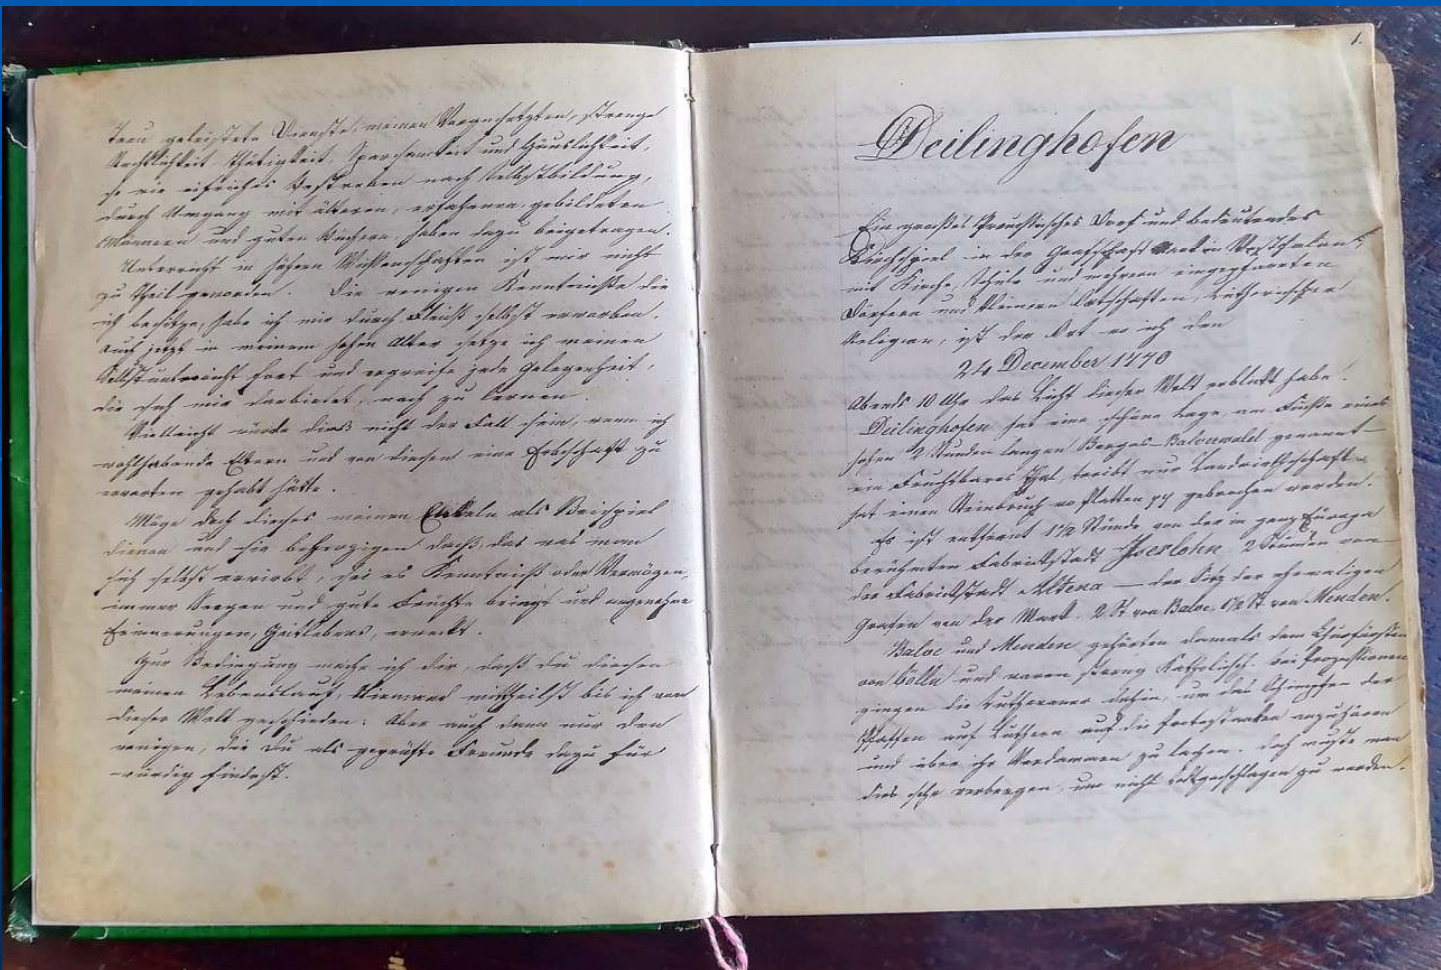 treu geleistete Dienste, meinen Vorgesetzten, strenge
Rechtlichkeit, Thätigkeit, Sparsamkeit und Häuslichkeit,
so wie eifriges Bestreben nach Selbstbildung,
durch Umgang mit älteren, erfahrenen, gebildeten
Männern und guten Büchern haben dazu beigetragen.
Unterricht in höhern Wissenschaften ist mir nicht
zu Theil geworden. Die wenigen Kenntniße die
ich besitze, habe ich mir durch Fleiß selbst erworben.
Auch jetzt in meinem hohen Alter setze ich meinen
Selbstunterricht fort und ergreife jede Gelegenheit,
die sich mir darbietet, noch zu lernen.
Vielleicht würde dies nicht der Fall sein, wenn ich
wohlhabende Eltern und von diesen eine Erbschaft zu
erwarten gehabt hätte.
Möge doch dieses meinen Enkeln als Beispiel
dienen und sie beherzigen daß, das was man
sich selbst erwirbt, sei es Kenntniß oder Vermögen,
immer Seegen und gute Früchte bringt und angenehme
Erinnerungen, Zeitlebens, erweckt.
Zur Bedingung mache ich dir, daß du diesen
meinen Lebenslauf, Niemand mittheilst bis ich von
dieser Welt geschieden. Aber auch dann nur den
wenigen, die Du als geprüfte Freunde dazu für
würdig findest.
1.
Deilinghofen
Ein großes Preußisches Dorf und bedeutendes
Kirchspiel in der Grafschaft Mark in Westphalen
mit Kirche, Schule und mehrern eingepfarrten
Dörfern und kleinen Ortschaften, Lutherischer
Religion, ist der Ort wo ich den
24 December 1770
Abends 10 Uhr das Licht dieser Welt erblickt habe.
Deilinghofen hat eine schöne Lage, am Fuße eines
hohen 2 Stunden langen Berges Balverwald genannt
ein fruchtbares Thal, treibt nur Landwirthschaft
hat einen Steinbruch wo Platten pp gebrochen werden.
Es ist entfernt 1 1/2 Stunde von der in ganz Europa
berühmten Fabrickstadt Iserlohn, 2 Stunden von
der Fabrickstadt Altena – der Sitz der ehemaligen
Grafen von der Mark. 2 St von Balve, 1 1/2 St. von Menden.
Balve und Menden gehörten damals dem Churfürsten
von Cölln und waren streng katholisch. Bei Prozessionen
gingen die Lutheraner dahin, um das Schimpfen der
Pfaffen auf Luthern auf die Protestanten anzuhören
und über ihr Verdammen zu lachen. Doch mußte man
dies sehr verbergen um nicht todtgeschlagen zu werden.